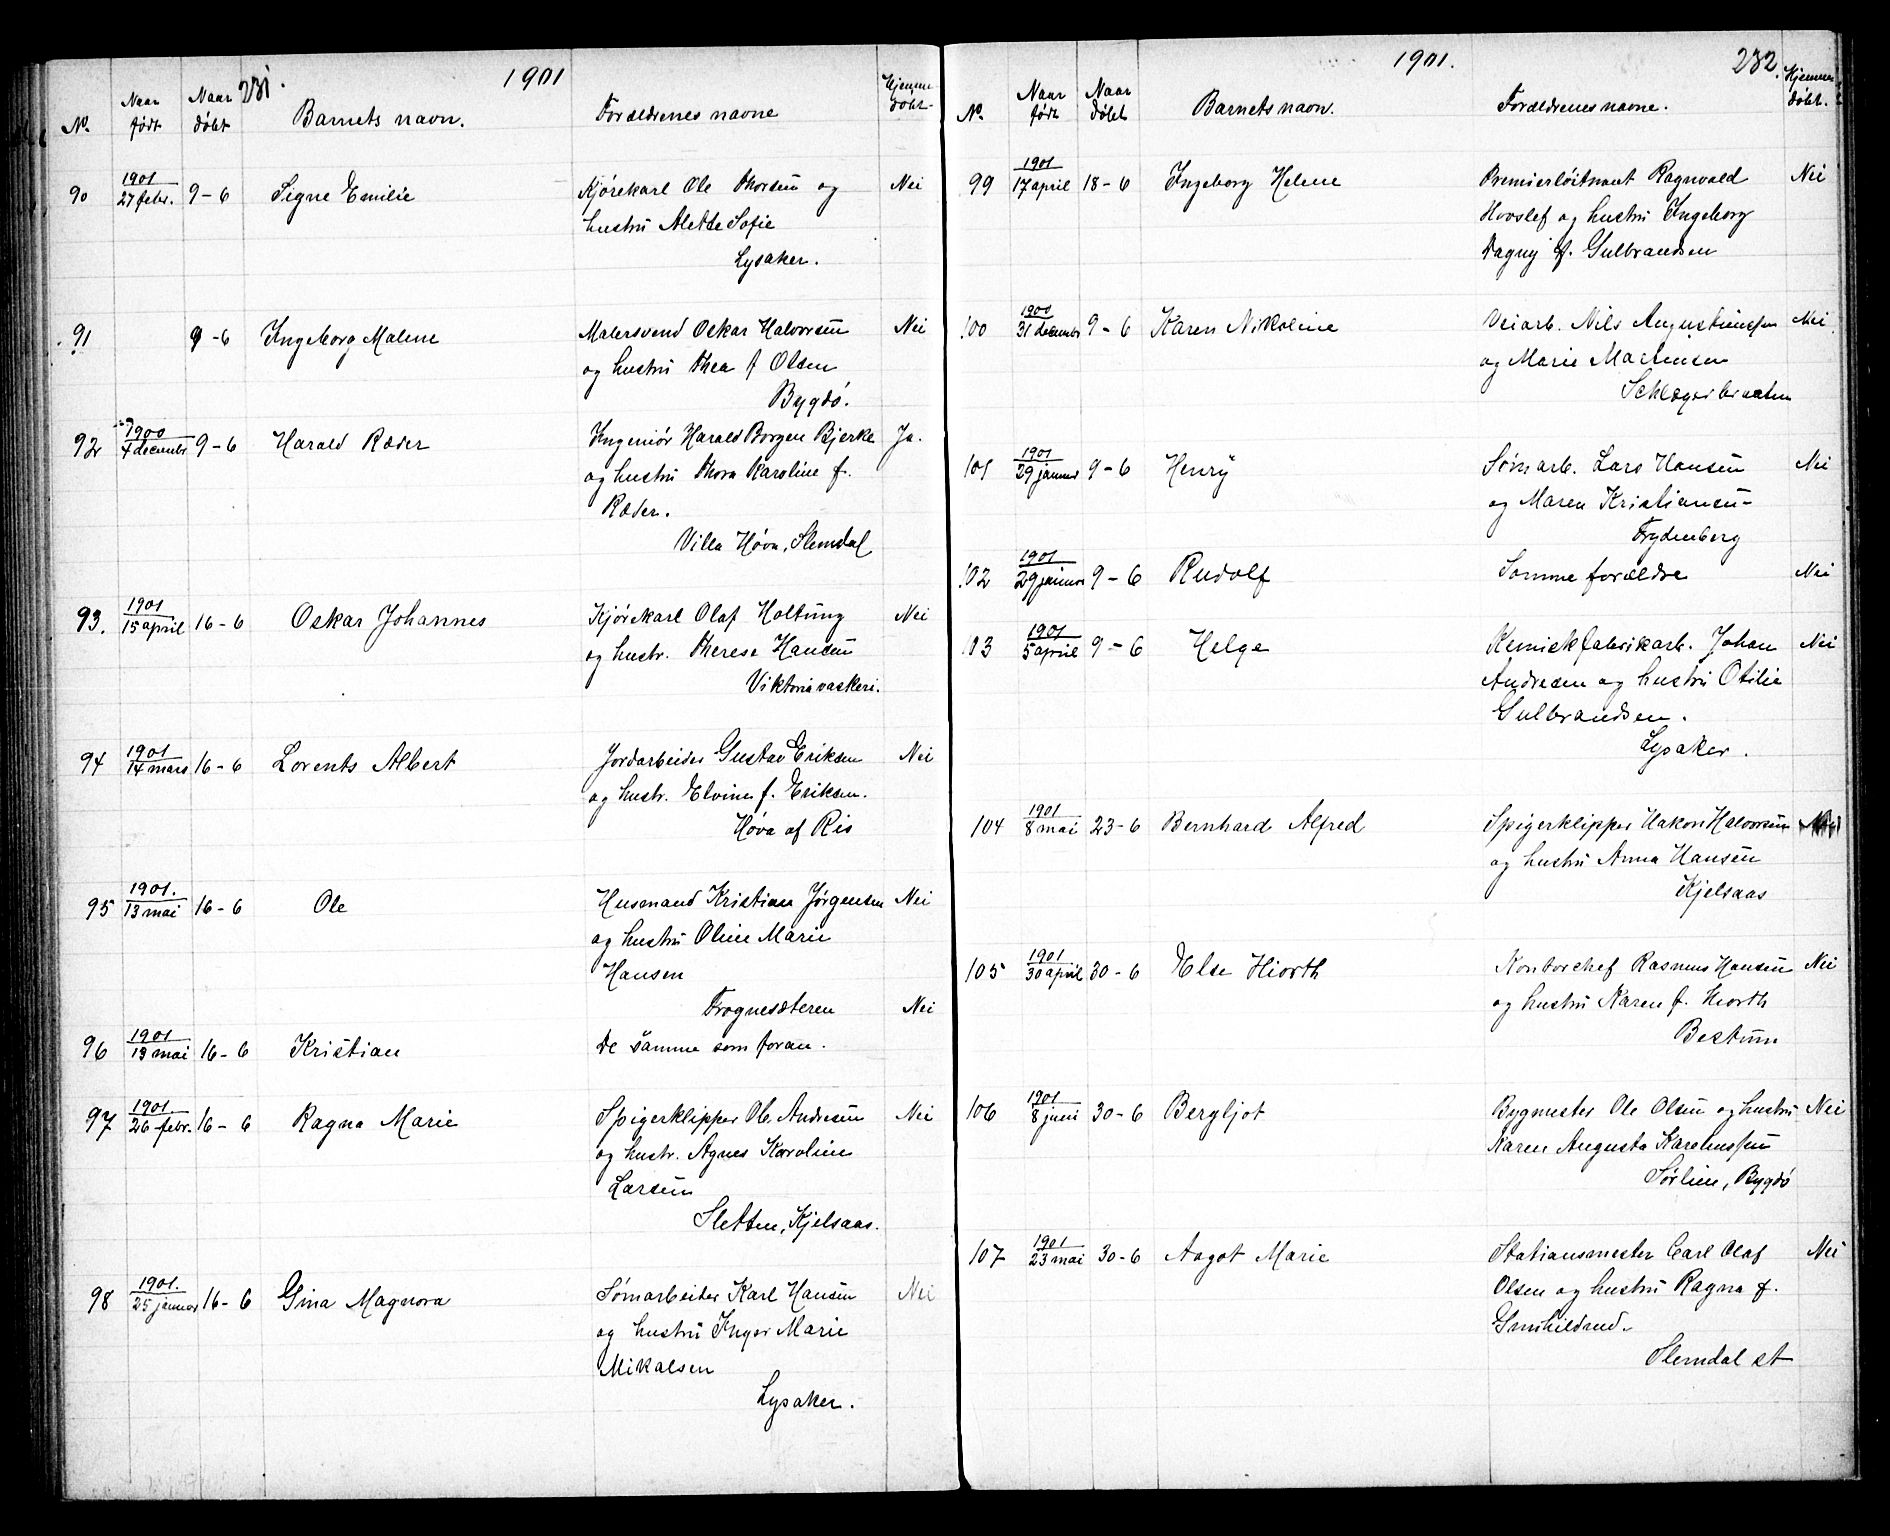 231.
1901
No. Naar født Naar døbt Barnets navn. Forældrenes navne Hjemmedøbt
90 1901 27 febr. 9-6 Signe Emilie Kjørekarl Ole Thorsen og Nei
hustru Alette Sofie
Lysaker.
91 9-6 Ingeborg Malene Malersvend Oskar Halvorsen Nei
og hustru Thea f Olsen
Bygdö.
92 1900 4 decembr 9-6 Harald Ræder Ingeniör Harald Borgen Bjerke Ja.
og hustru Thora Karoline f.
Ræder.
Villa Høva, Slemdal
93. 1901 15 april 16-6 Oskar Johannes Kjörekarl Olaf Holtung Nei
og hustr. Therese Hansen
Viktoria vaskeri.
94 1901 14 mars 16-6 Lorents Albert Jordarbeider Gustav Eriksen Nei
og hustr. Elvine f. Eriksen.
Høva af Ris
95 1901. 13 mai 16-6 Ole Husmand Kristian Jørgensen Nei
og hustru Oline Marie
Hansen
Frognesæteren Nei
96 1901 13 mai 16-6 Kristian De samme som foran.
97 1901. 26 febr. 16-6 Ragna Marie Spigerklipper Ole Andresen Nei
og hustr. Agnes Karoline
Larsen
Sletten, Kjelsaas.
98 1901. 25 januar 16-6 Gina Magnora Tømarbeider Karl Hansen Nei
og hustru Inger Marie
Mikalsen
Lysaker.
1901. 232.
No. Naar født Naar døbt Barnets navn. Forældrenes navne. Hjemmedøbt.
99 1901 17 april 18-6 Ingeborg Helene Premierlöitnant Ragnvald Nei
Hovslef og hustru Ingeborg
Dagny f. Gulbrandsen
100 1900 31 decembr 9-6 Karen Nikoline Veiarb. Nils Augustinussen Nei
og Marie Martinsen
101 1901 29 januar 9-6 Henry Tömarb. Lars Hansen Nei
og Maren Kristiansen-
Frydenberg
102 1901 29 januar 9-6 Rudolf Samme forældre Nei
103 1901 5 april 9-6 Helge Kemiskfabrikarb. Johan Nei
Andresen og hustru Otilie
Gulbrandsen.
Lysaker.
104 1901 8 mai 23-6 Bernhard Alfred Spigerklipper Hakon Halvorsen Nei
og hustru Anna Hansen
Kjelsaas
105 1901 30 april 30-6 Else Hiorth Kontorchef Rasmus Hansen Nei
og hustru Karen f. Hiorth
Bestum
106 1901 8 juni 30-6 Bergljot Bygmester Ole Olsen og hustru Nei
Karen Augusta Kareliussen
Sørlien, Bygdö
107 1901 23 mai 30-6 Aagot Marie Stationsmester Carl Olaf Nei
Olsen og hustru Ragna f.
Slemdal st